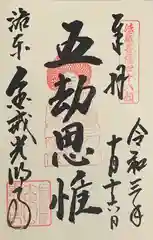 奉拝
令和三年
十月十六日
五劫思惟
洛東
金戒光明寺